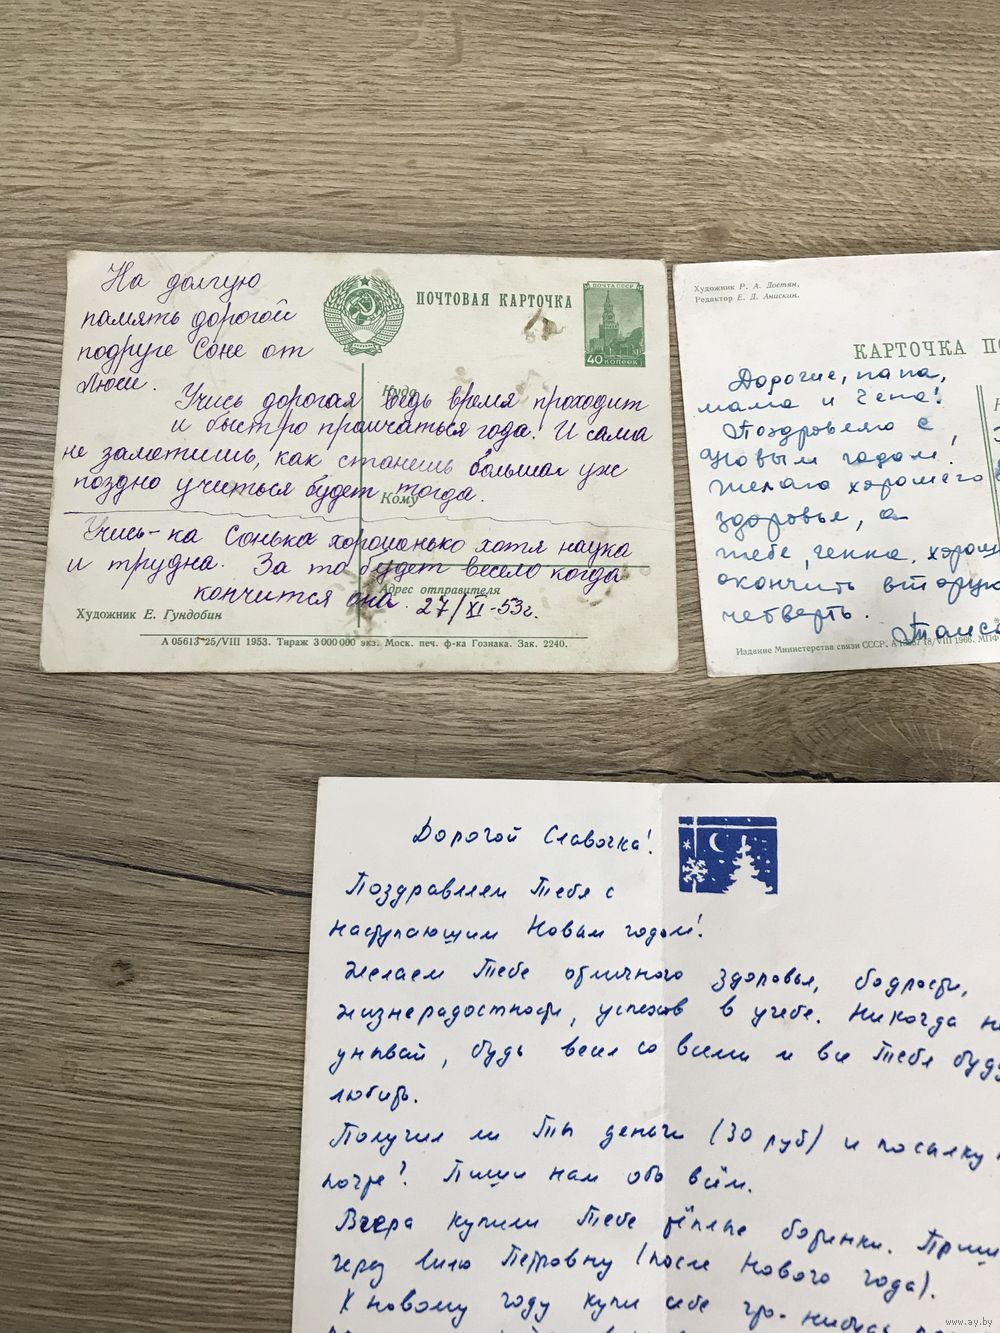 На долгую
память дорогой
подруге Соне от
Люси.
ПОЧТОВАЯ КАРТОЧКА
ПОЧТА СССР
40 КОПЕЕК
Куда
Учись дорогая ведь время проходит
и быстро промчаться года. И сама
не заметишь, как станешь большая уж
поздно учиться будет тогда.
Кому
Учись-ка Сонька хорошонько хотя наука
и трудна. За то будет весело когда
кончится она. 27/XI-53г.
Адрес отправителя
Художник Е. Гундобин
А 05613 25/VIII 1953. Тираж 3 000 000 экз. Моск. печ. ф-ка Гознака. Зак. 2240.
Художник Р. А. Достян.
Редактор Е. Д. Анискин.
КАРТОЧКА
Дорогие, папа,
мама и Гена!
Поздравляю с
Новым годом.
Желаю хорошего
здоровья, а
тебе, Генка,
окончить вторую
четверть.
Издание Министерства связи СССР.
Дорогой Славочка!
Поздравляем Тебя с
наступающим Новым годом!
Желаем Тебе отличного здоровья, бодрости,
жизнерадостности, успехов в учебе. Никогда не
унывай, будь весел со всеми и все Тебя будут
любить.
Получил ли Ты деньги (30 руб) и посылку
почте? Пиши нам обо всём.
Вчера купили Тебе тёплые ботинки.
через Петровну (после Нового года).
К новому году купи себе что-нибудь
www.ay.by